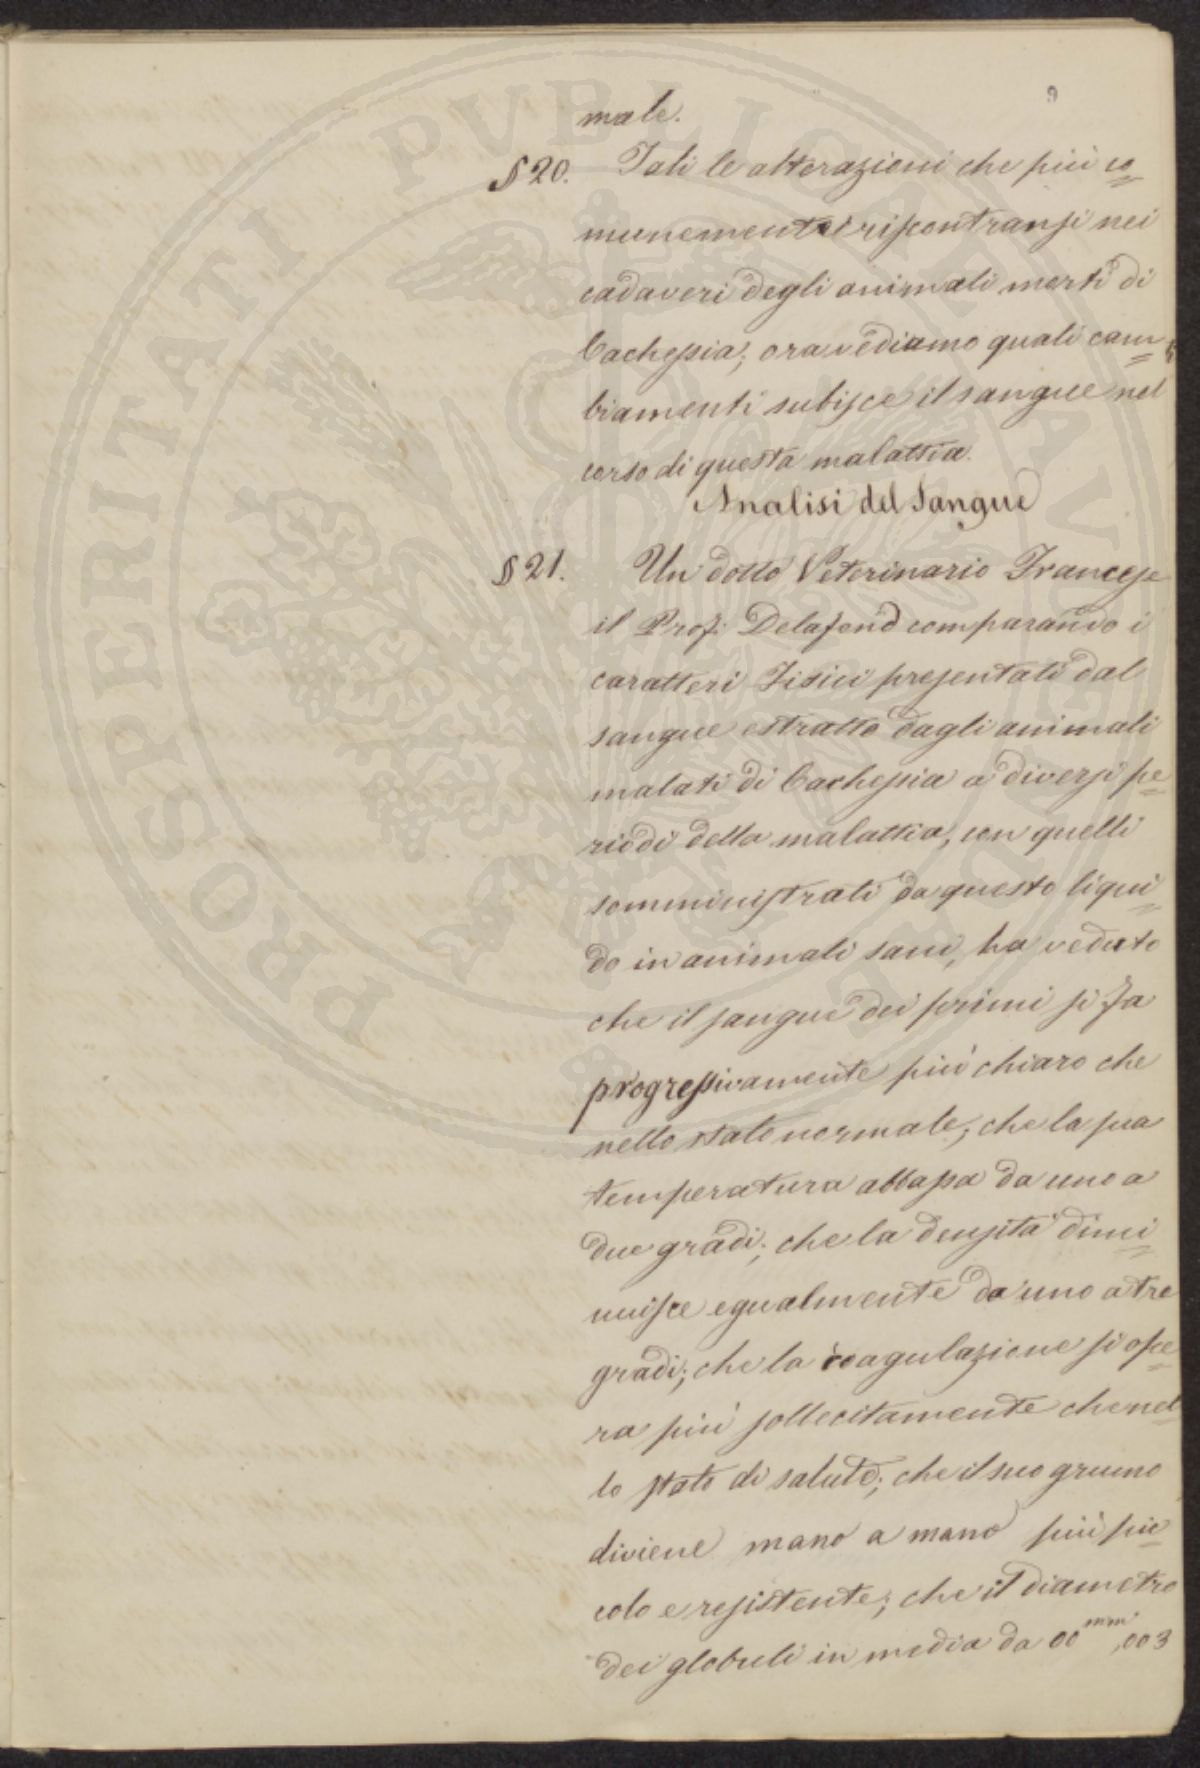 9
male.
§ 20. Tali le alterazioni che più co=
munemente riscontransi nei
cadaveri degli animali morti di
Cachessia; ora vediamo quali cam=
biamenti subisce il sangue nel
corso di questa malattia.
Analisi del Sangue
§ 21. Un dotto Veterinario Francese
il Prof: Delafond comparando i
caratteri Fisici presentati dal
sangue estratto dagli animali
malati di Cachessia a diversi pe=
riodi della malattia, con quelli
somministrati da questo liqui=
do in animali sani, ha veduto
che il sangue dei primi si fa
progressivamente più chiaro che
nello stato normale; che la sua
temperatura abbassa da uno a
due gradi; che la densità dimi=
nuisce egualmente da uno a tre
gradi; che la coagulazione si ope=
ra più sollecitamente che nel=
lo stato di salute; che il suo grumo
diviene mano a mano più pic=
colo e resistente; che il diametro
dei globuli in media da 00mm,003
PROSPERITATI PUBLICAE AUGENDAE